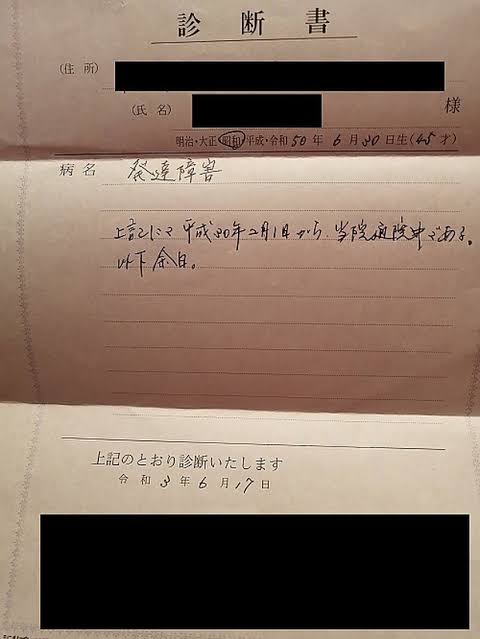 診断書
(住所)
(氏名) 様
明治・大正・昭和・平成・令和 50年 6月 30日生(45才)
病名 発達障害
上記にて平成30年2月1日から、当院通院中である。
以下余白。
上記のとおり診断いたします
令和 3年 6月 17日